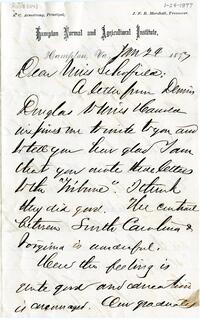 1-29-1877
S. C. Armstrong, Principal.
J. F. B. Marshall, Treasurer.
Hampton Normal and Agricultural Institute,
Hampton, Va., Jan 29 1877
Dear Miss Schofield:
A letter from Dennis
Douglas to Miss
inspires me to write to you and
to tell you how glad I am
that you wrote those letters
to the "Tribune". I think
they did good. The contrast
between South Carolina &
Virginia is wonderful.
Here the feeling is
quite good and education
is encouraged. Our graduates